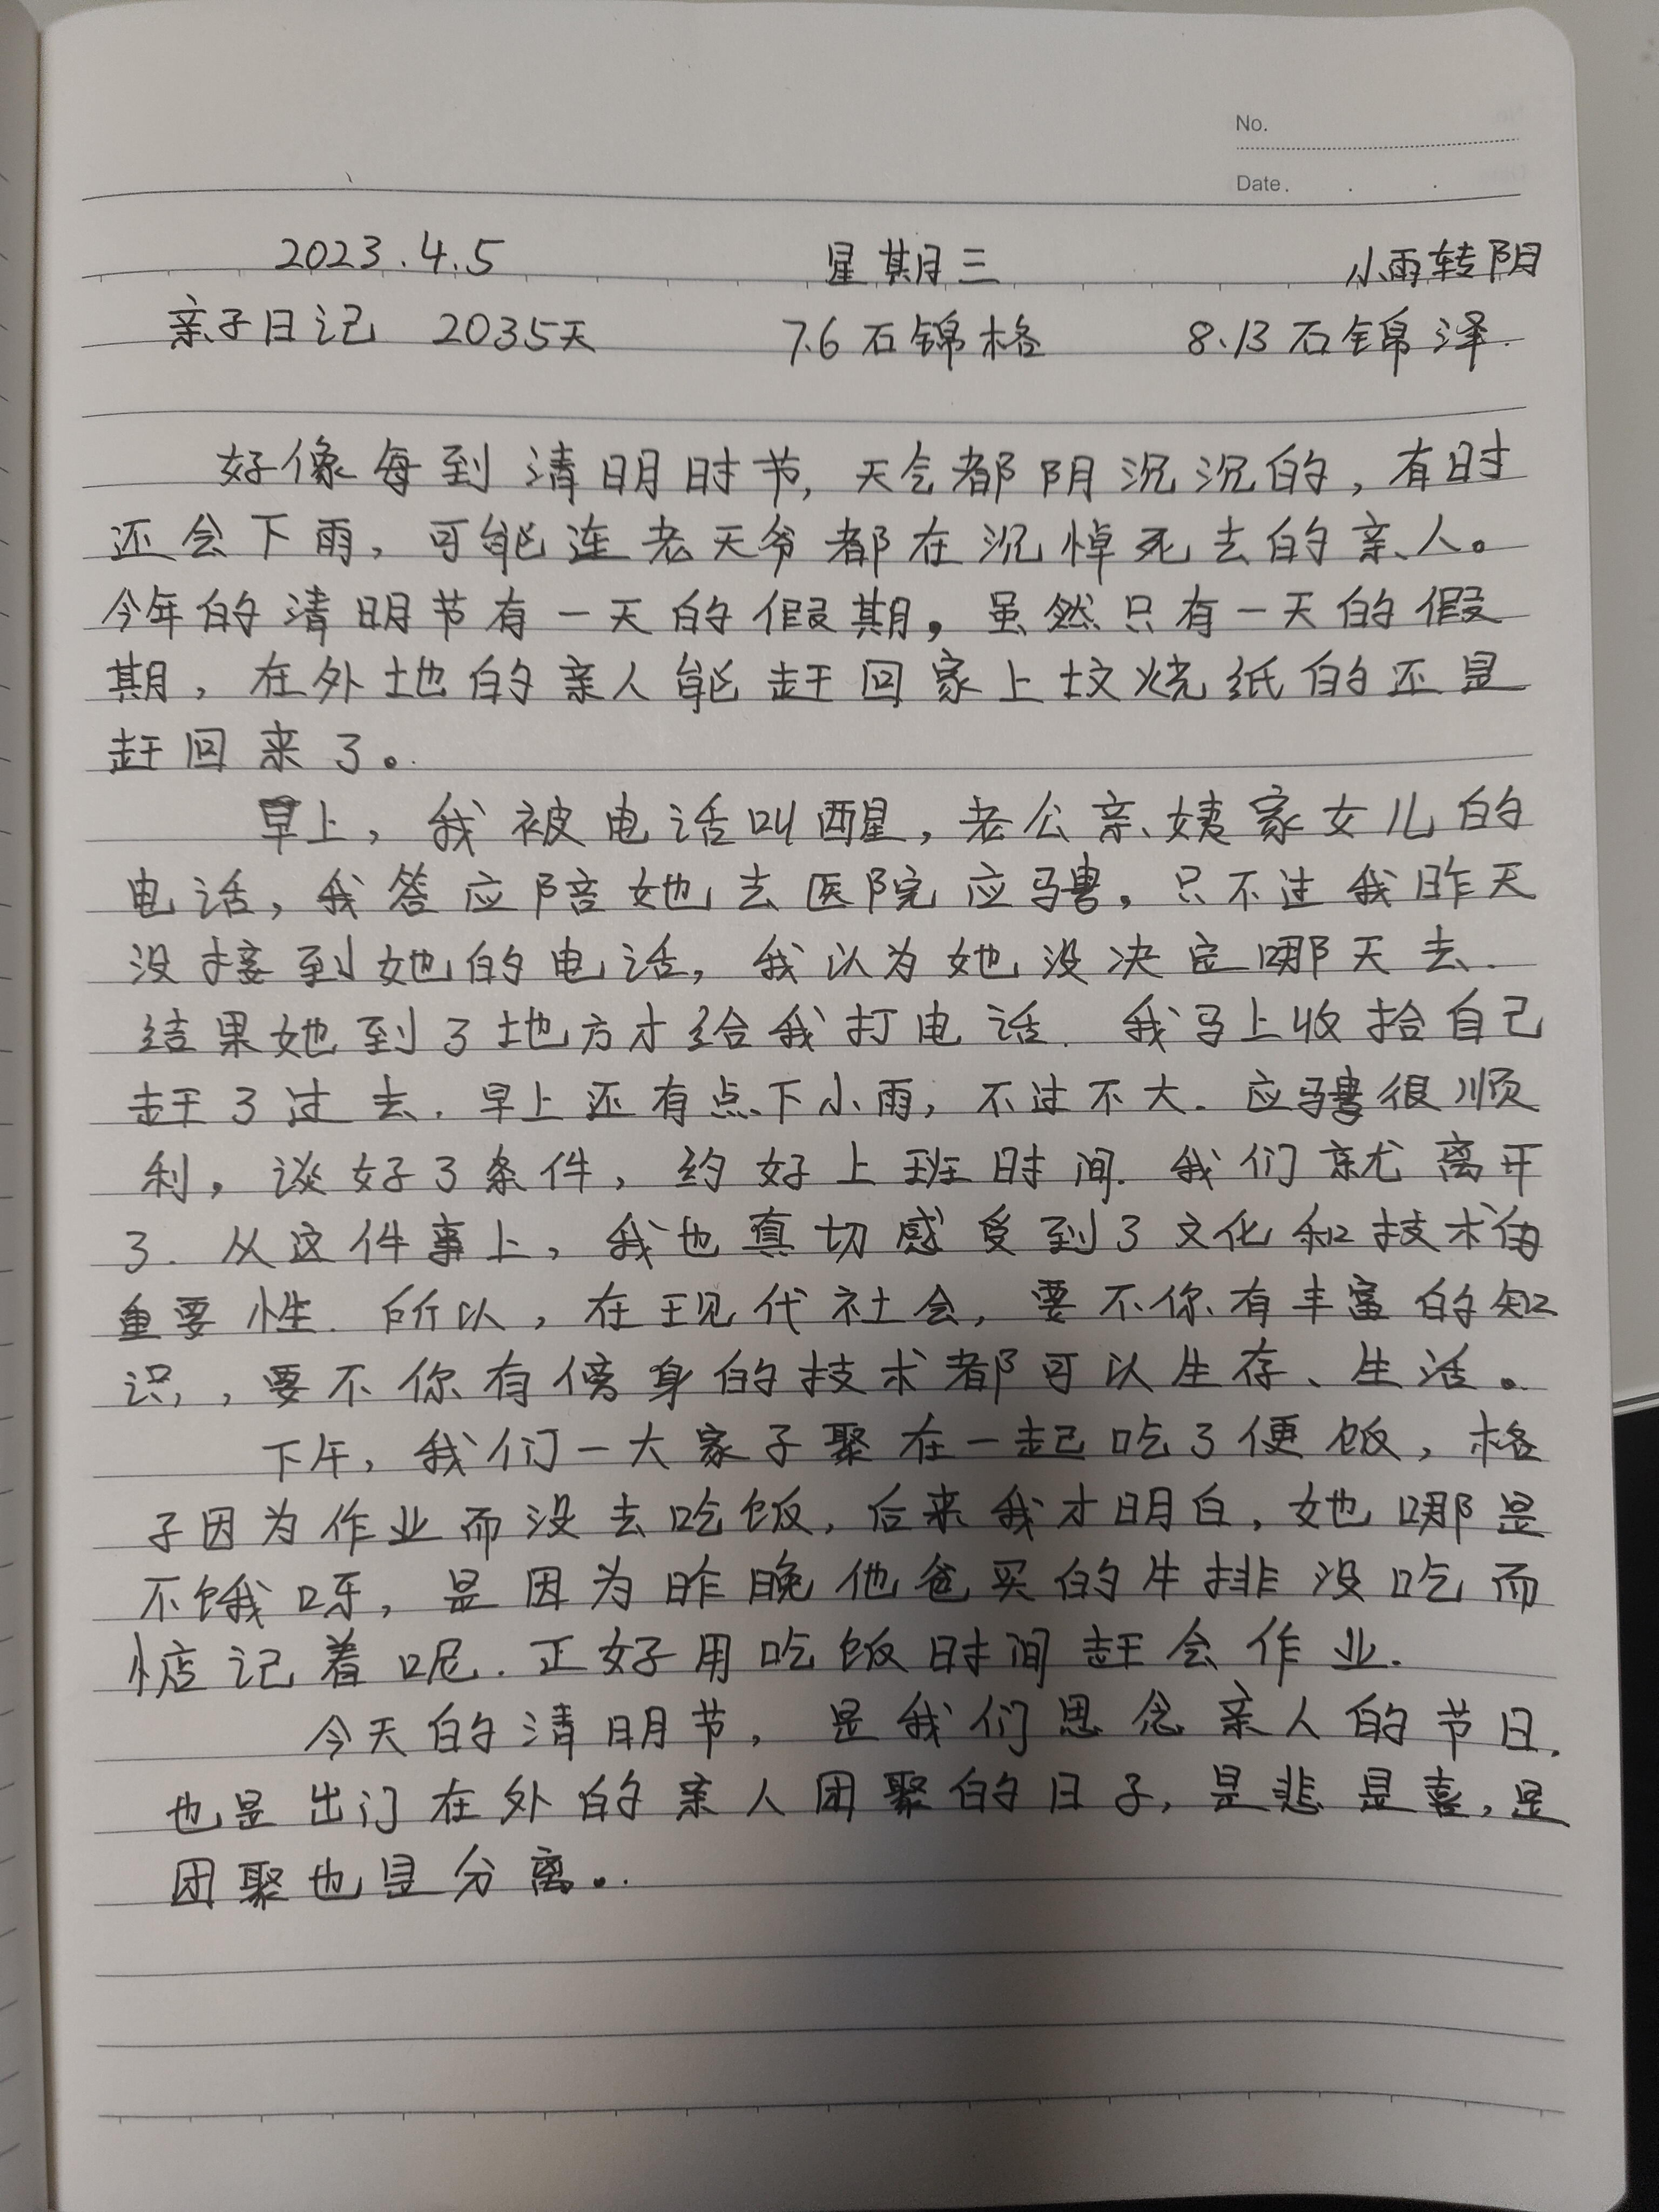 No.
Date.
2023.4.5 星期三 小雨转阴
亲子日记 2035天 7.6石锦格 8.13石锦泽.
好像每到清明时节,天气都阴沉沉的,有时
还会下雨,可能连老天爷都在沉悼死去的亲人。
今年的清明节有一天的假期,虽然只有一天的假
期,在外地的亲人能赶回家上坟烧纸的还是
赶回来了。
早上,我被电话叫醒,老公亲姨家女儿的
电话,我答应陪她去医院应骋,只不过我昨天
没接到她的电话,我以为她没决定哪天去.
结果她到了地方才给我打电话.我马上收拾自己
赶了过去.早上还有点下小雨,不过不大.应骋很顺
利,谈好了条件,约好上班时间.我们就离开
了.从这件事上,我也真切感受到了文化和技术的
重要性.所以,在现代社会,要不你有丰富的知
识,,要不你有傍身的技术都可以生存、生活。
下午,我们一大家子聚在一起吃了便饭,格
子因为作业而没去吃饭,后来我才明白,她哪是
不饿呀,是因为昨晚他爸买的牛排没吃而
惦记着呢.正好用吃饭时间赶会作业.
今天的清明节,是我们思念亲人的节日.
也是出门在外的亲人团聚的日子,是悲是喜,是
团聚也是分离。.